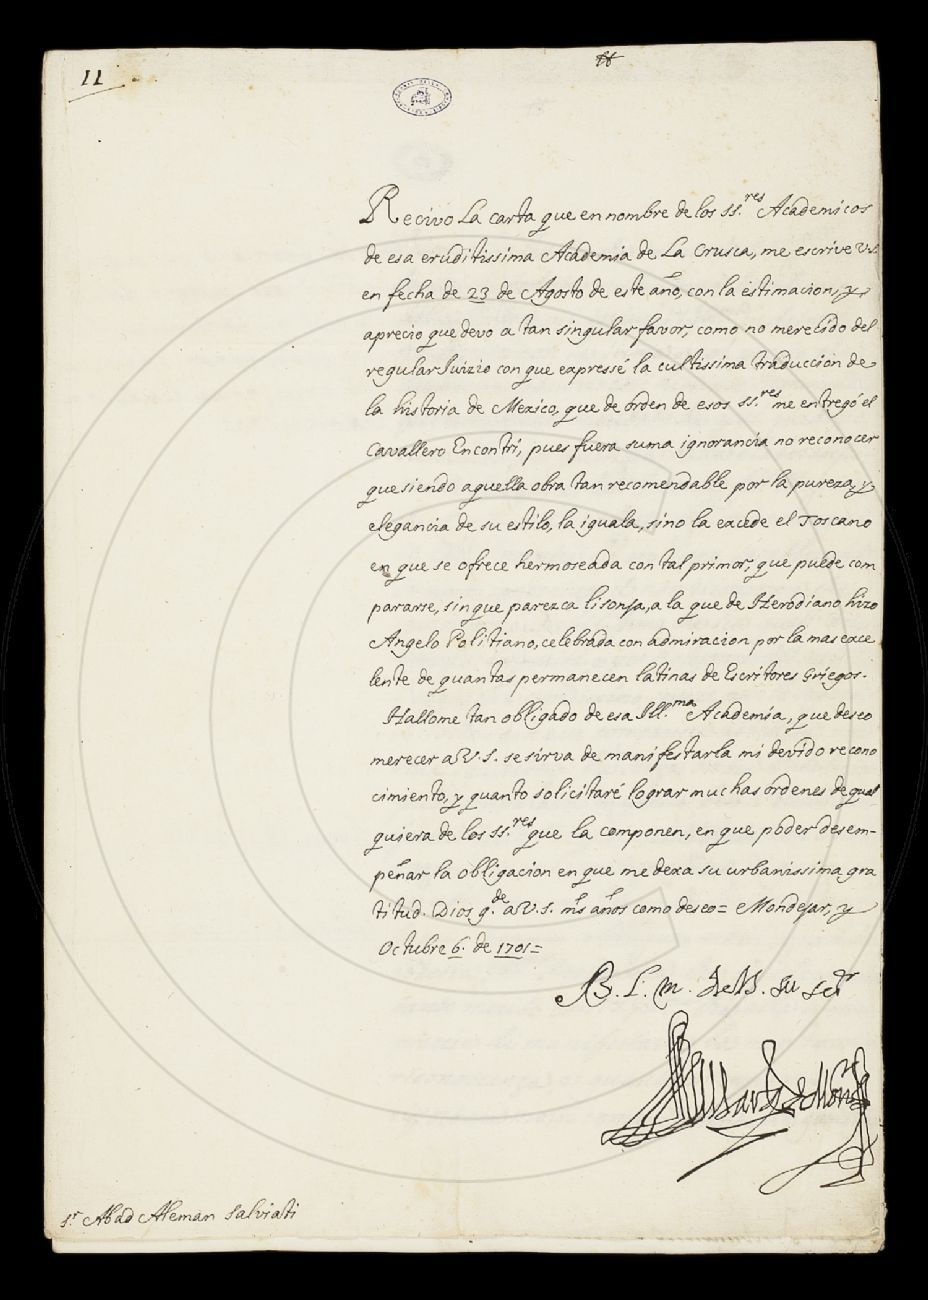 11
Recivo La carta que en nombre de los ss.res Academicos
de esa eruditissima Academia de La Crusca, me escrive V.S.
en fecha de 23 de Agosto de este año, con la estimacion, y
aprecio que devo a tan singular favor, como no merecido del
regular Iuizio con que expressé la cultissima traduccion de
la historia de Mexico, que de orden de esos ss.res me entregó el
Cavallero Encontri, pues fuera suma ignorancia no reconocer
que siendo aquella obra tan recomendable por la pureza, y
elegancia de su estilo, la iguala, sino la excede el Toscano
en que se ofrece hermoseada con tal primor, que puede com
pararse, sin que parezca lisonja, a la que de Herodiano hizo
Angelo Politiano, celebrada con admiracion por la mas exce
lente de quantas permanecen latinas de Escritores Griegos.
Hallome tan obligado de esa Ill.ma Academia, que deseo
merecer a V.S. se sirva de manifestarla mi devido recono
cimiento, y quanto solicitaré lograr muchas ordenes de qual
quiera de los ss.res que la componen, en que poder desem-
peñar la obligacion en que me dexa su urbanissima gra
titud. Dios g.de a V.S. ms años como deseo = Mondejar, y
Octubre 6. de 1701 =
B. L. M. de V.S. su ser.or
El Marqs de Mondr
sr Abad Aleman Salviati